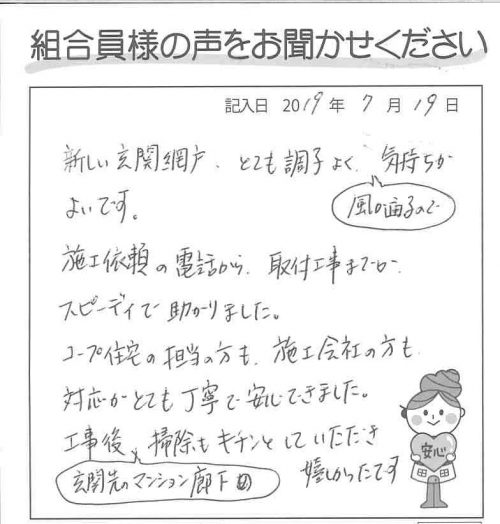 組合員様の声をお聞かせください
記入日 2019年 7月 19日
新しい玄関網戸、とても調子よく、気持ちが
風が通るので
よいです。
施工依頼の電話から、取付工事までが、
スピーディで助かりました。
コープ住宅の担当の方も、施工会社の方も、
対応がとても丁寧で安心できました。
工事後、掃除もキチンとしていただき
玄関先のマンション廊下の
嬉しかったです
安心